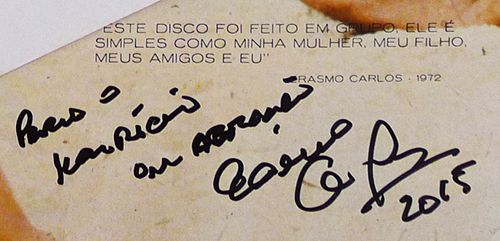 ESTE DISCO FOI FEITO EM GRUPO. ELE É
SIMPLES COMO MINHA MULHER, MEU FILHO,
MEUS AMIGOS E EU"
ERASMO CARLOS - 1972
PARA O
MAURÍCIO
UM ABRAÇÃO
Erasmo Carlos
2015